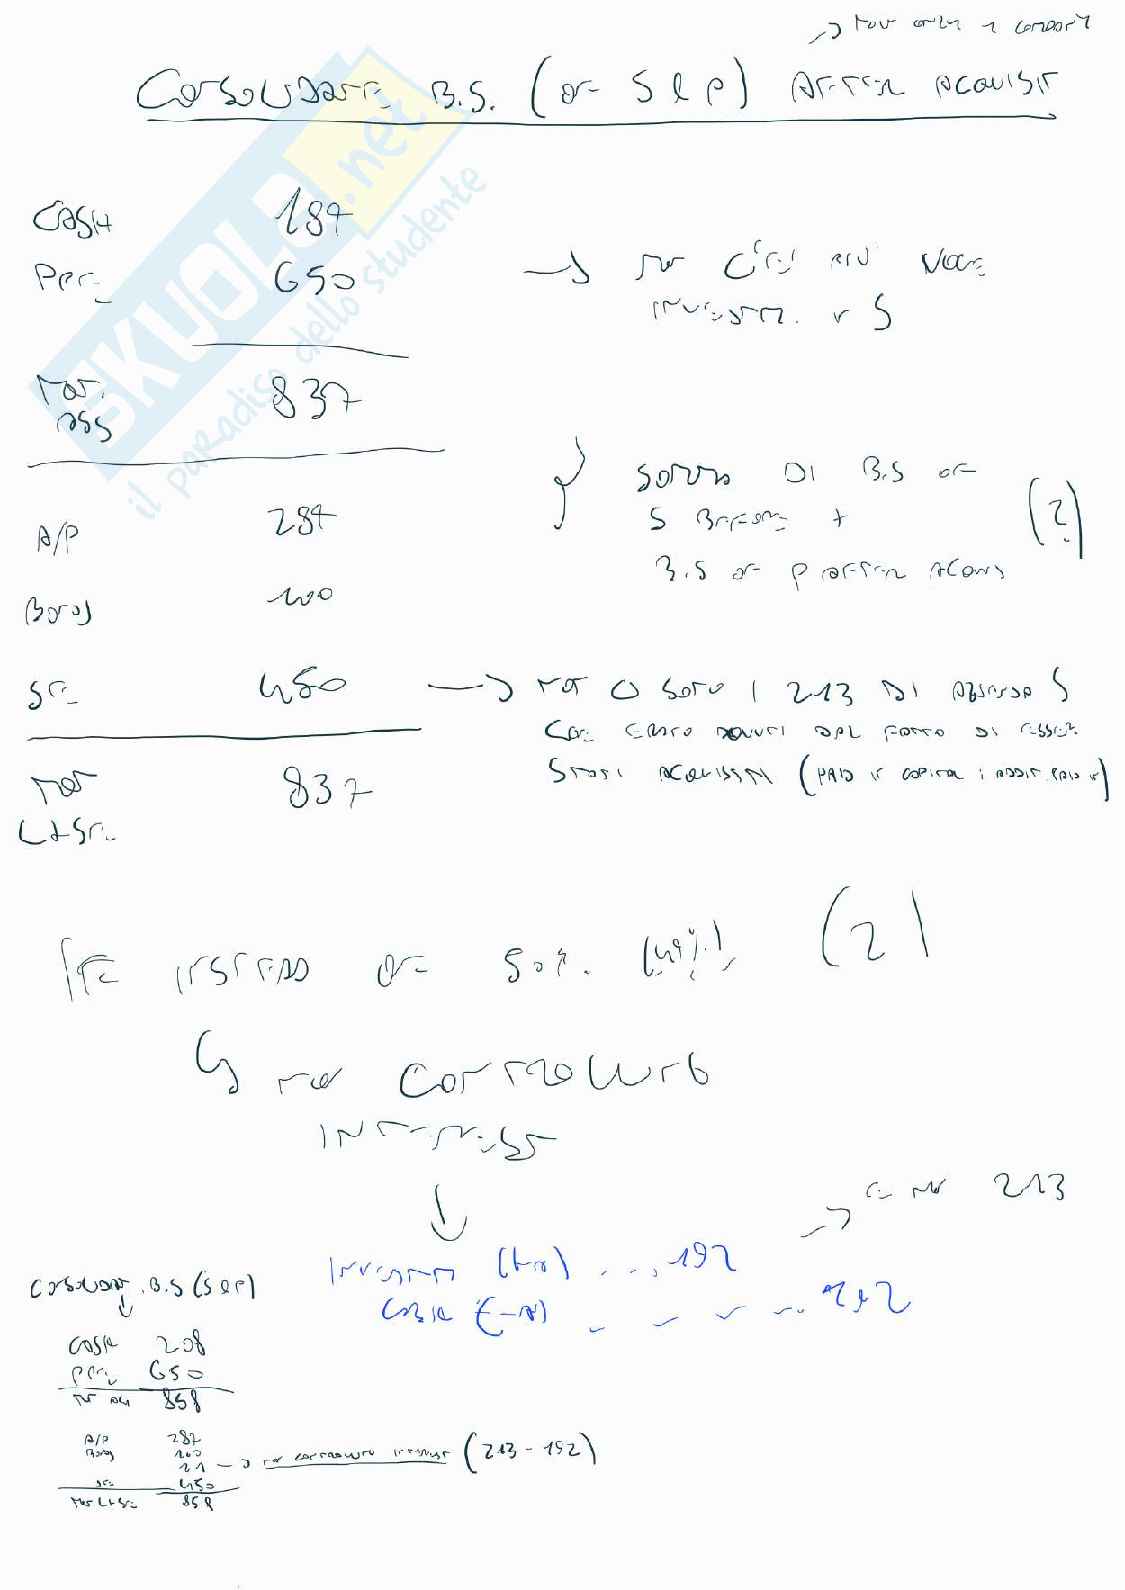 → NOW ONLY 1 COMPANY
CONSOLIDATE B.S. (OF S & P) AFTER ACQUISIT
SKUOLA.net
il paradiso dello studente
CASH 187
PPE 650 → NON C'È PIÙ VOCE
INVESTM. IN S
TOT. ASS 837
A/P 287
SOMMA DI B.S OF
S BEFORE +
B.S OF P AFTER ACQUIS
(?)
BONDS 100
SE 450 → NON CI SONO I 213 DI AZIENDA S
CHE ERANO DOVUTI DAL FATTO DI ESSER
STATI ACQUISITI (PAID IN CAPITAL; ADDIT. PAID IN)
TOT L+SE 837
IF INSTEAD OF 90%. (2)
↳ NON CONTROLLING
INTEREST
↓
→ E NON 213
INVESTM (+A) ... 192
CASH (-A) ... 192
CONSOLIDAT. B.S (S & P)
↓
CASH 208
PPE 650
TOT ASS 858
A/P 287
BONDS 100
21 → NON CONTROLLING INTEREST (213-192)
SE 450
TOT L+SE 858